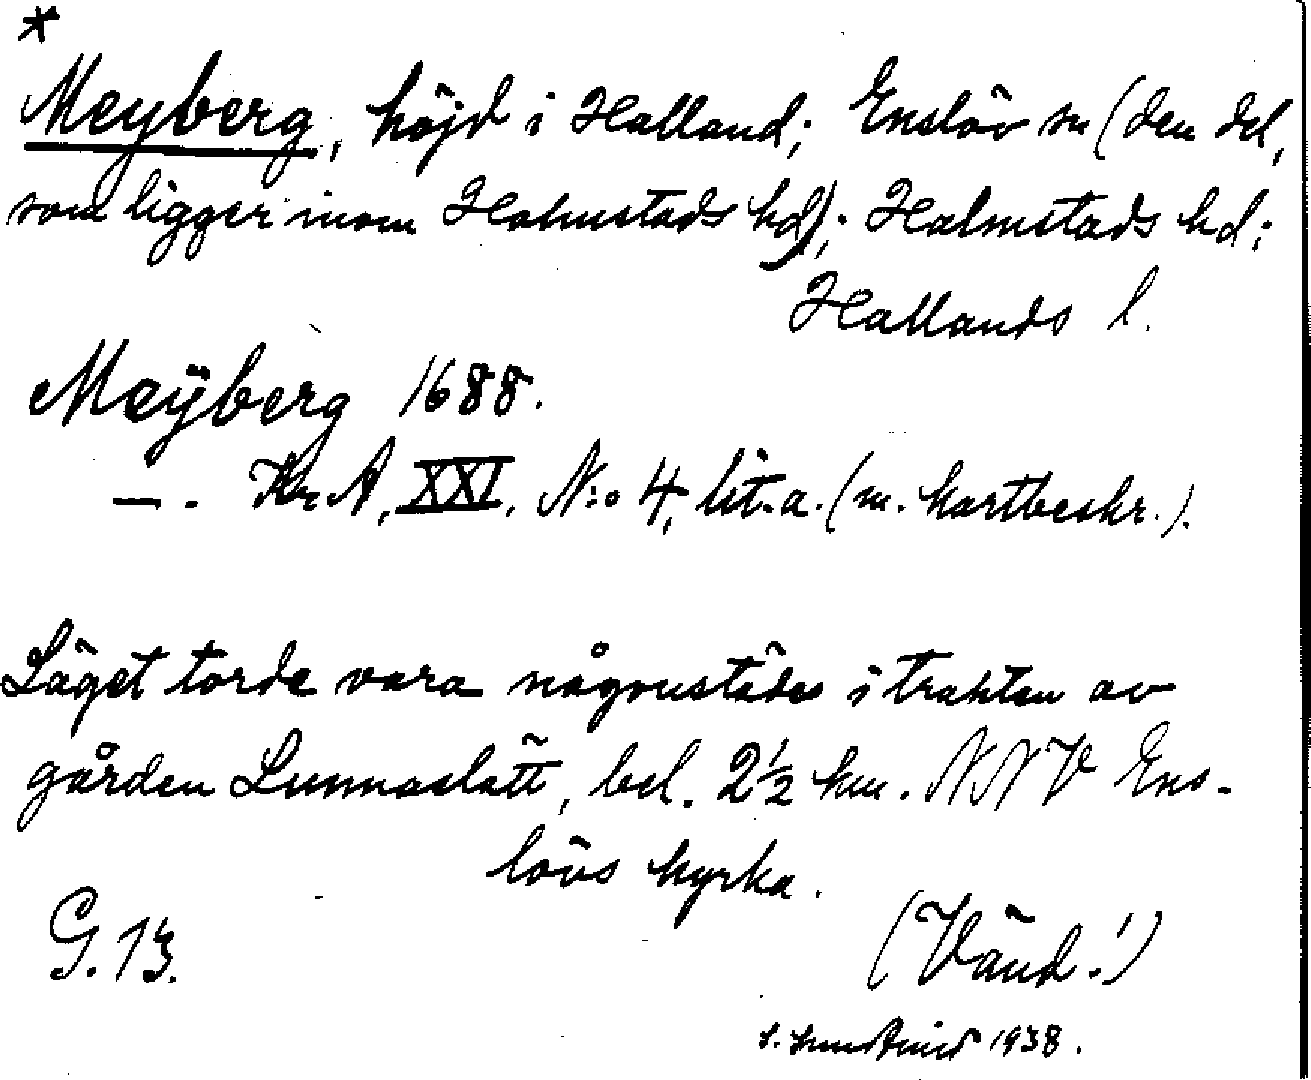 *
Meyberg, höjd i Halland; Enslöv sn (den del,
som ligger inom Halmstads hd); Halmstads hd;
Hallands l.
Meÿberg 1688.
—. Kr.A, XXI, N:o 4, lit. a. (m. kartbeskr.).
Läget torde vara någonstädes i trakten av
gården Lunnaslätt, bel. 2½ km. NNV Ens-
lövs kyrka.
G. 13.
(Vänd!)
1938.